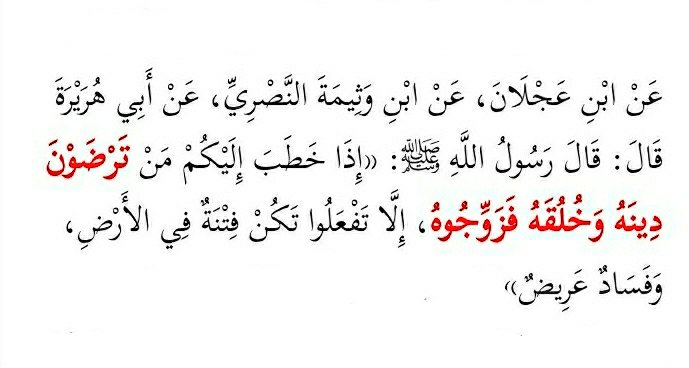 عَنْ ابْنِ عَجْلَانَ، عَنْ ابْنِ وَثِيمَةَ النَّصْرِيِّ، عَنْ أَبِي هُرَيْرَةَ
قَالَ: قَالَ رَسُولُ اللَّهِ ﷺ: «إِذَا خَطَبَ إِلَيْكُمْ مَنْ تَرْضَوْنَ
دِينَهُ وَخُلُقَهُ فَزَوِّجُوهُ، إِلَّا تَفْعَلُوا تَكُنْ فِتْنَةٌ فِي الأَرْضِ،
وَفَسَادٌ عَرِيضٌ»